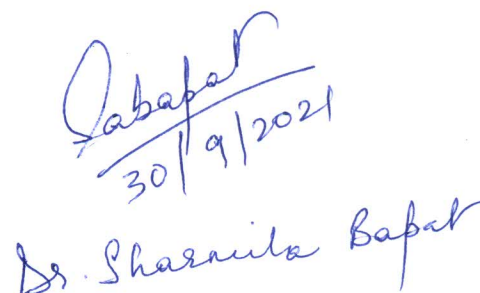 Sabapat
30/9/2021
Dr. Sharmila Bapat